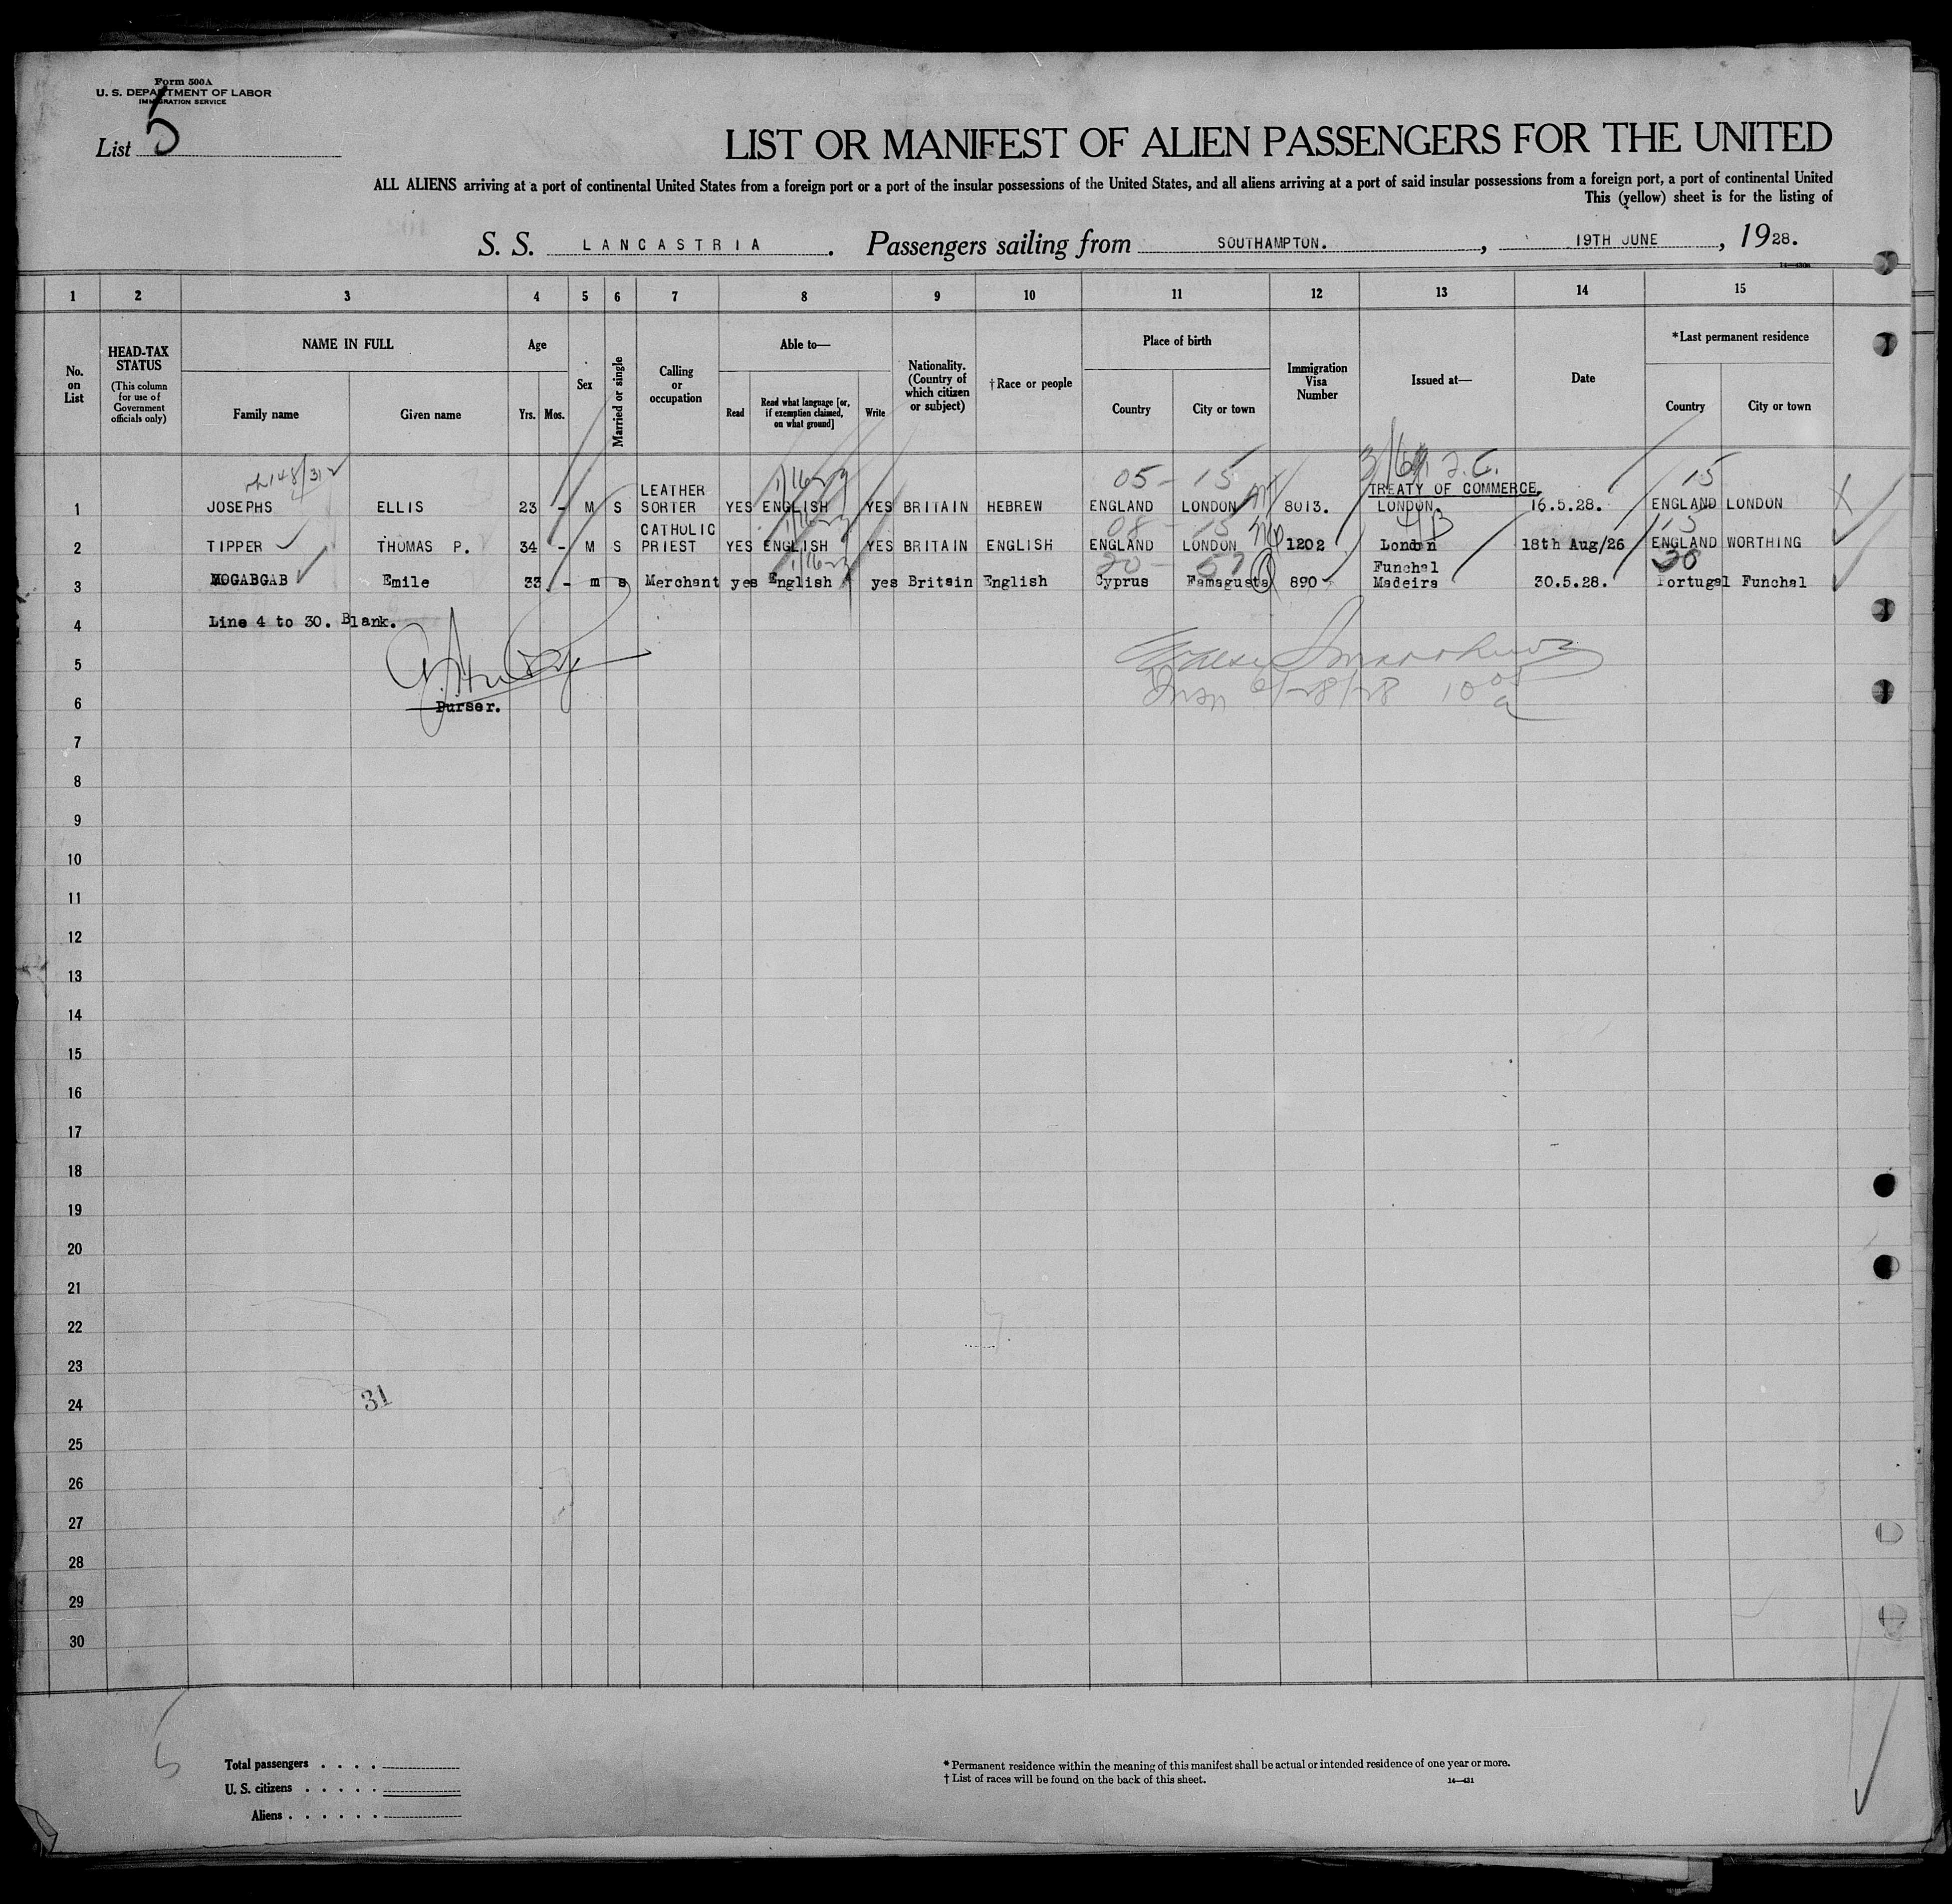 Form 500A
U. S. DEPARTMENT OF LABOR
IMMIGRATION SERVICE
List 5
LIST OR MANIFEST OF ALIEN PASSENGERS FOR THE UNITED
ALL ALIENS arriving at a port of continental United States from a foreign port or a port of the insular possessions of the United States, and all aliens arriving at a port of said insular possessions from a foreign port, a port of continental United
This (yellow) sheet is for the listing of
S. S. LANCASTRIA. Passengers sailing from SOUTHAMPTON., 19TH JUNE, 1928.
1 2 3 4 5 6 7 8 9 10 11 12 13 14 15
No. on List
HEAD-TAX STATUS (This column for use of Government officials only)
NAME IN FULL
Family name Given name
Age
Yrs. Mos.
Sex
Married or single
Calling or occupation
Able to—
Read Read what language [or, if exemption claimed, on what ground] Write
Nationality. (Country of which citizen or subject)
†Race or people
Place of birth
Country City or town
Immigration Visa Number
Issued at—
Date
*Last permanent residence
Country City or town
05 - 15 15
TREATY OF COMMERCE.
1 JOSEPHS ELLIS 23 - M S LEATHER SORTER YES ENGLISH YES BRITAIN HEBREW ENGLAND LONDON 8013. LONDON. 16.5.28. ENGLAND LONDON
08 - 15 15
2 TIPPER THOMAS P. 34 - M S CATHOLIC PRIEST YES ENGLISH YES BRITAIN ENGLISH ENGLAND LONDON 1202 London 18th Aug/26 ENGLAND WORTHING
3 MOGABGAB Emile 33 - m s Merchant yes English yes Britain English Cyprus Famagusta 890 Funchal Madeira 30.5.28. Portugal Funchal
4 Line 4 to 30. Blank.
5
6 Purser. 6/28/28 10
7
8
9
10
11
12
13
14
15
16
17
18
19
20
21
22
23
24 31
25
26
27
28
29
30
Total passengers . . . .
U. S. citizens . . . . .
Aliens . . . . . .
* Permanent residence within the meaning of this manifest shall be actual or intended residence of one year or more.
† List of races will be found on the back of this sheet.
14—431